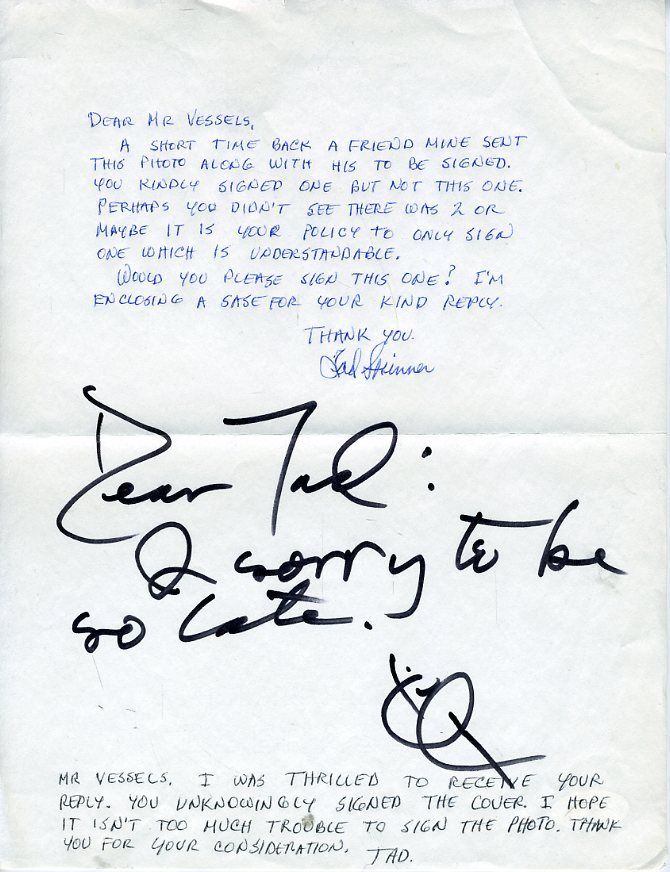 DEAR MR VESSELS,
A SHORT TIME BACK A FRIEND MINE SENT
THIS PHOTO ALONG WITH HIS TO BE SIGNED.
YOU KINDLY SIGNED ONE BUT NOT THIS ONE.
PERHAPS YOU DIDN'T SEE THERE WAS 2 OR
MAYBE IT IS YOUR POLICY TO ONLY SIGN
ONE WHICH IS UNDERSTANDABLE.
WOULD YOU PLEASE SIGN THIS ONE? I'M
ENCLOSING A SASE FOR YOUR KIND REPLY.
THANK YOU.
Tad Skinner
Dear Tad:
sorry to be
so late.
MR VESSELS, I WAS THRILLED TO RECEIVE YOUR
REPLY. YOU UNKNOWINGLY SIGNED THE COVER. I HOPE
IT ISN'T TOO MUCH TROUBLE TO SIGN THE PHOTO. THANK
YOU FOR YOUR CONSIDERATION. TAD.